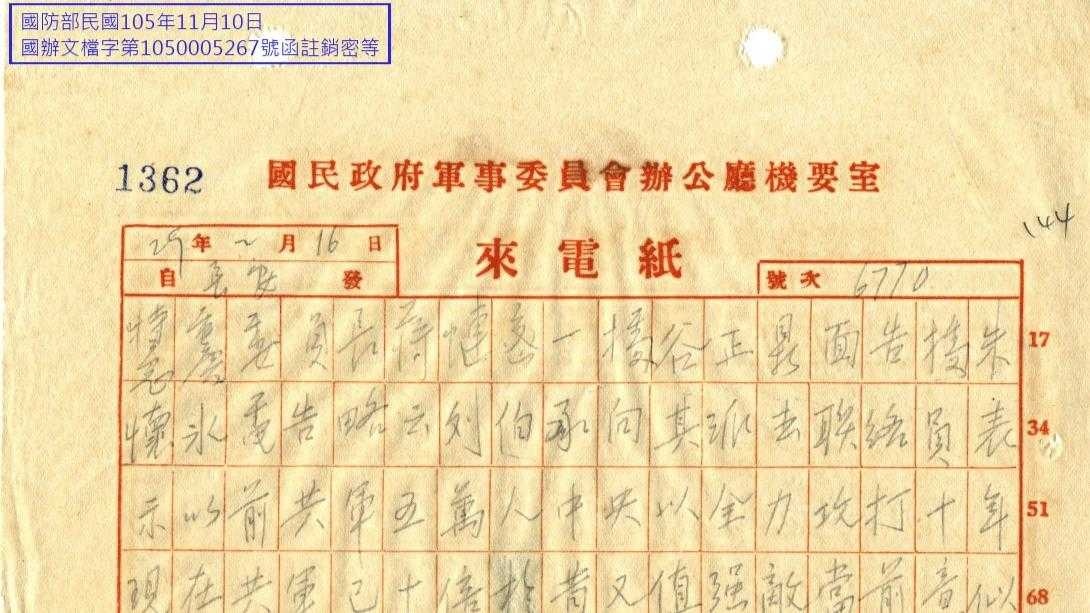 國防部民國105年11月10日
國辦文檔字第1050005267號函註銷密等
1362 國民政府軍事委員會辦公廳機要室
144
29年 2月16日
來電紙
自長安發
號次 6770
特急 慶委員長蔣 密一據谷正鼎面告接朱 17
懷冰電告略云刘伯承向其派去联絡員表 34
示以前共軍五萬人中央以全力攻打十年 51
現在共軍已十倍於昔又值强敵當前意似 68